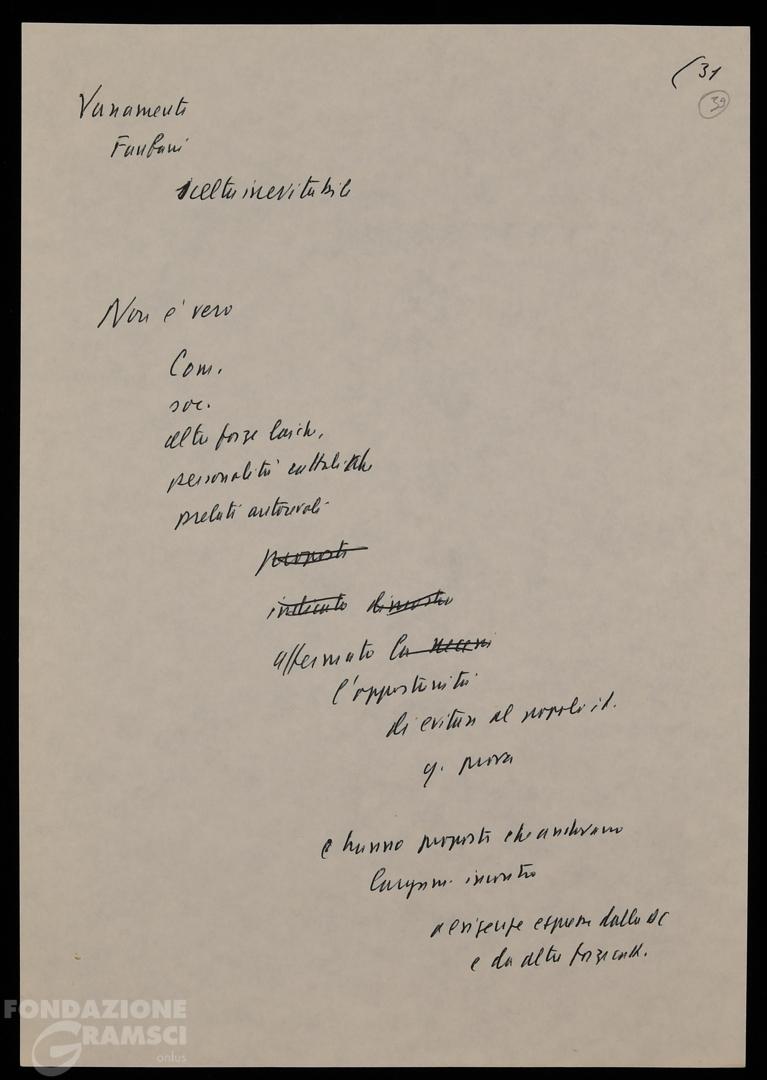 (31
39
Vanamente
Fanfani
scelta inevitabile
Non è vero
Com.
soc.
altre forze laiche,
personalità cattoliche
prelati autorevoli
proposte
indicato dimostro
affermato la necessi
l'opportunità
di evitare al popolo it.
q. prova
e hanno proposte che andavano
largam. incontro
a esigenze espresse dalla DC
e da altre forze catt.
FONDAZIONE
GRAMSCI
onlus